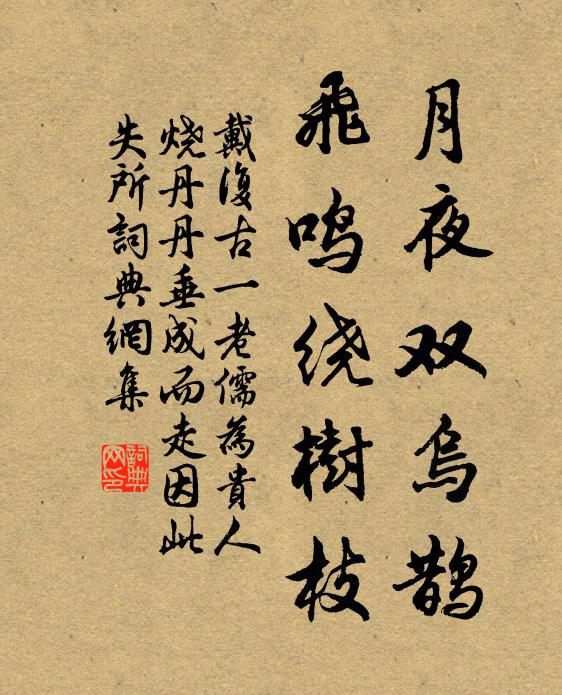 月夜双乌鹊
飛鸣绕樹枝
戴復古一老儒為貴人
烧丹丹垂成而走因此
失所詞典網集
詞典
网印